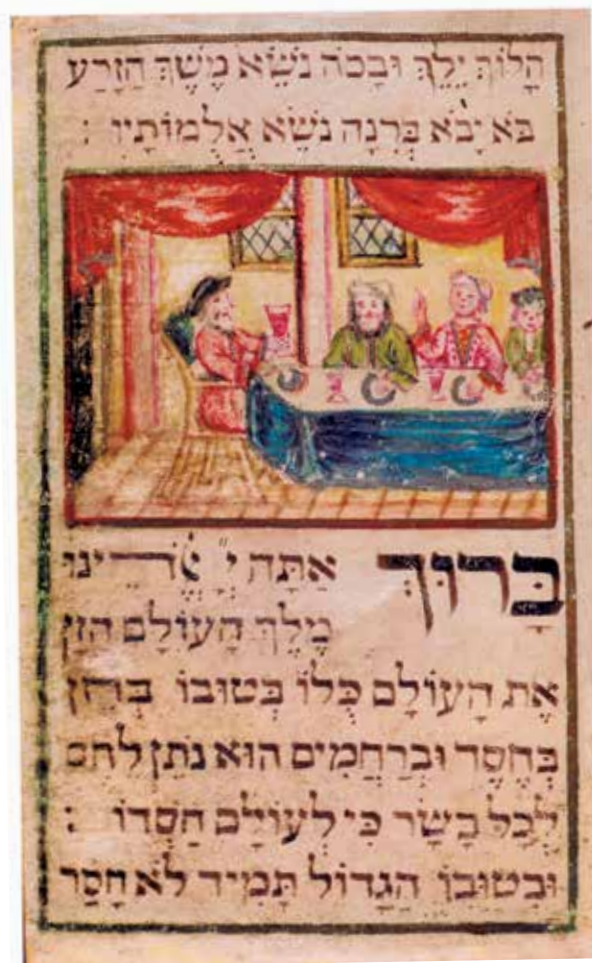 הָלוֹךְ יֵלֵךְ וּבָכֹה נֹשֵׂא מֶשֶׁךְ הַזָּרַע
בֹּא יָבֹא בְּרִנָּה נֹשֵׂא אֲלֻמּוֹתָיו :
בָּרוּךְ אַתָּה יְיָ אֱלֹהֵינוּ
מֶלֶךְ הָעוֹלָם הַזָּן
אֶת הָעוֹלָם כֻּלּוֹ בְּטוּבוֹ בְּחֵן
בְּחֶסֶד וּבְרַחֲמִים הוּא נֹתֵן לֶחֶם
לְכָל בָּשָׂר כִּי לְעוֹלָם חַסְדּוֹ :
וּבְטוּבוֹ הַגָּדוֹל תָּמִיד לֹא חָסַר